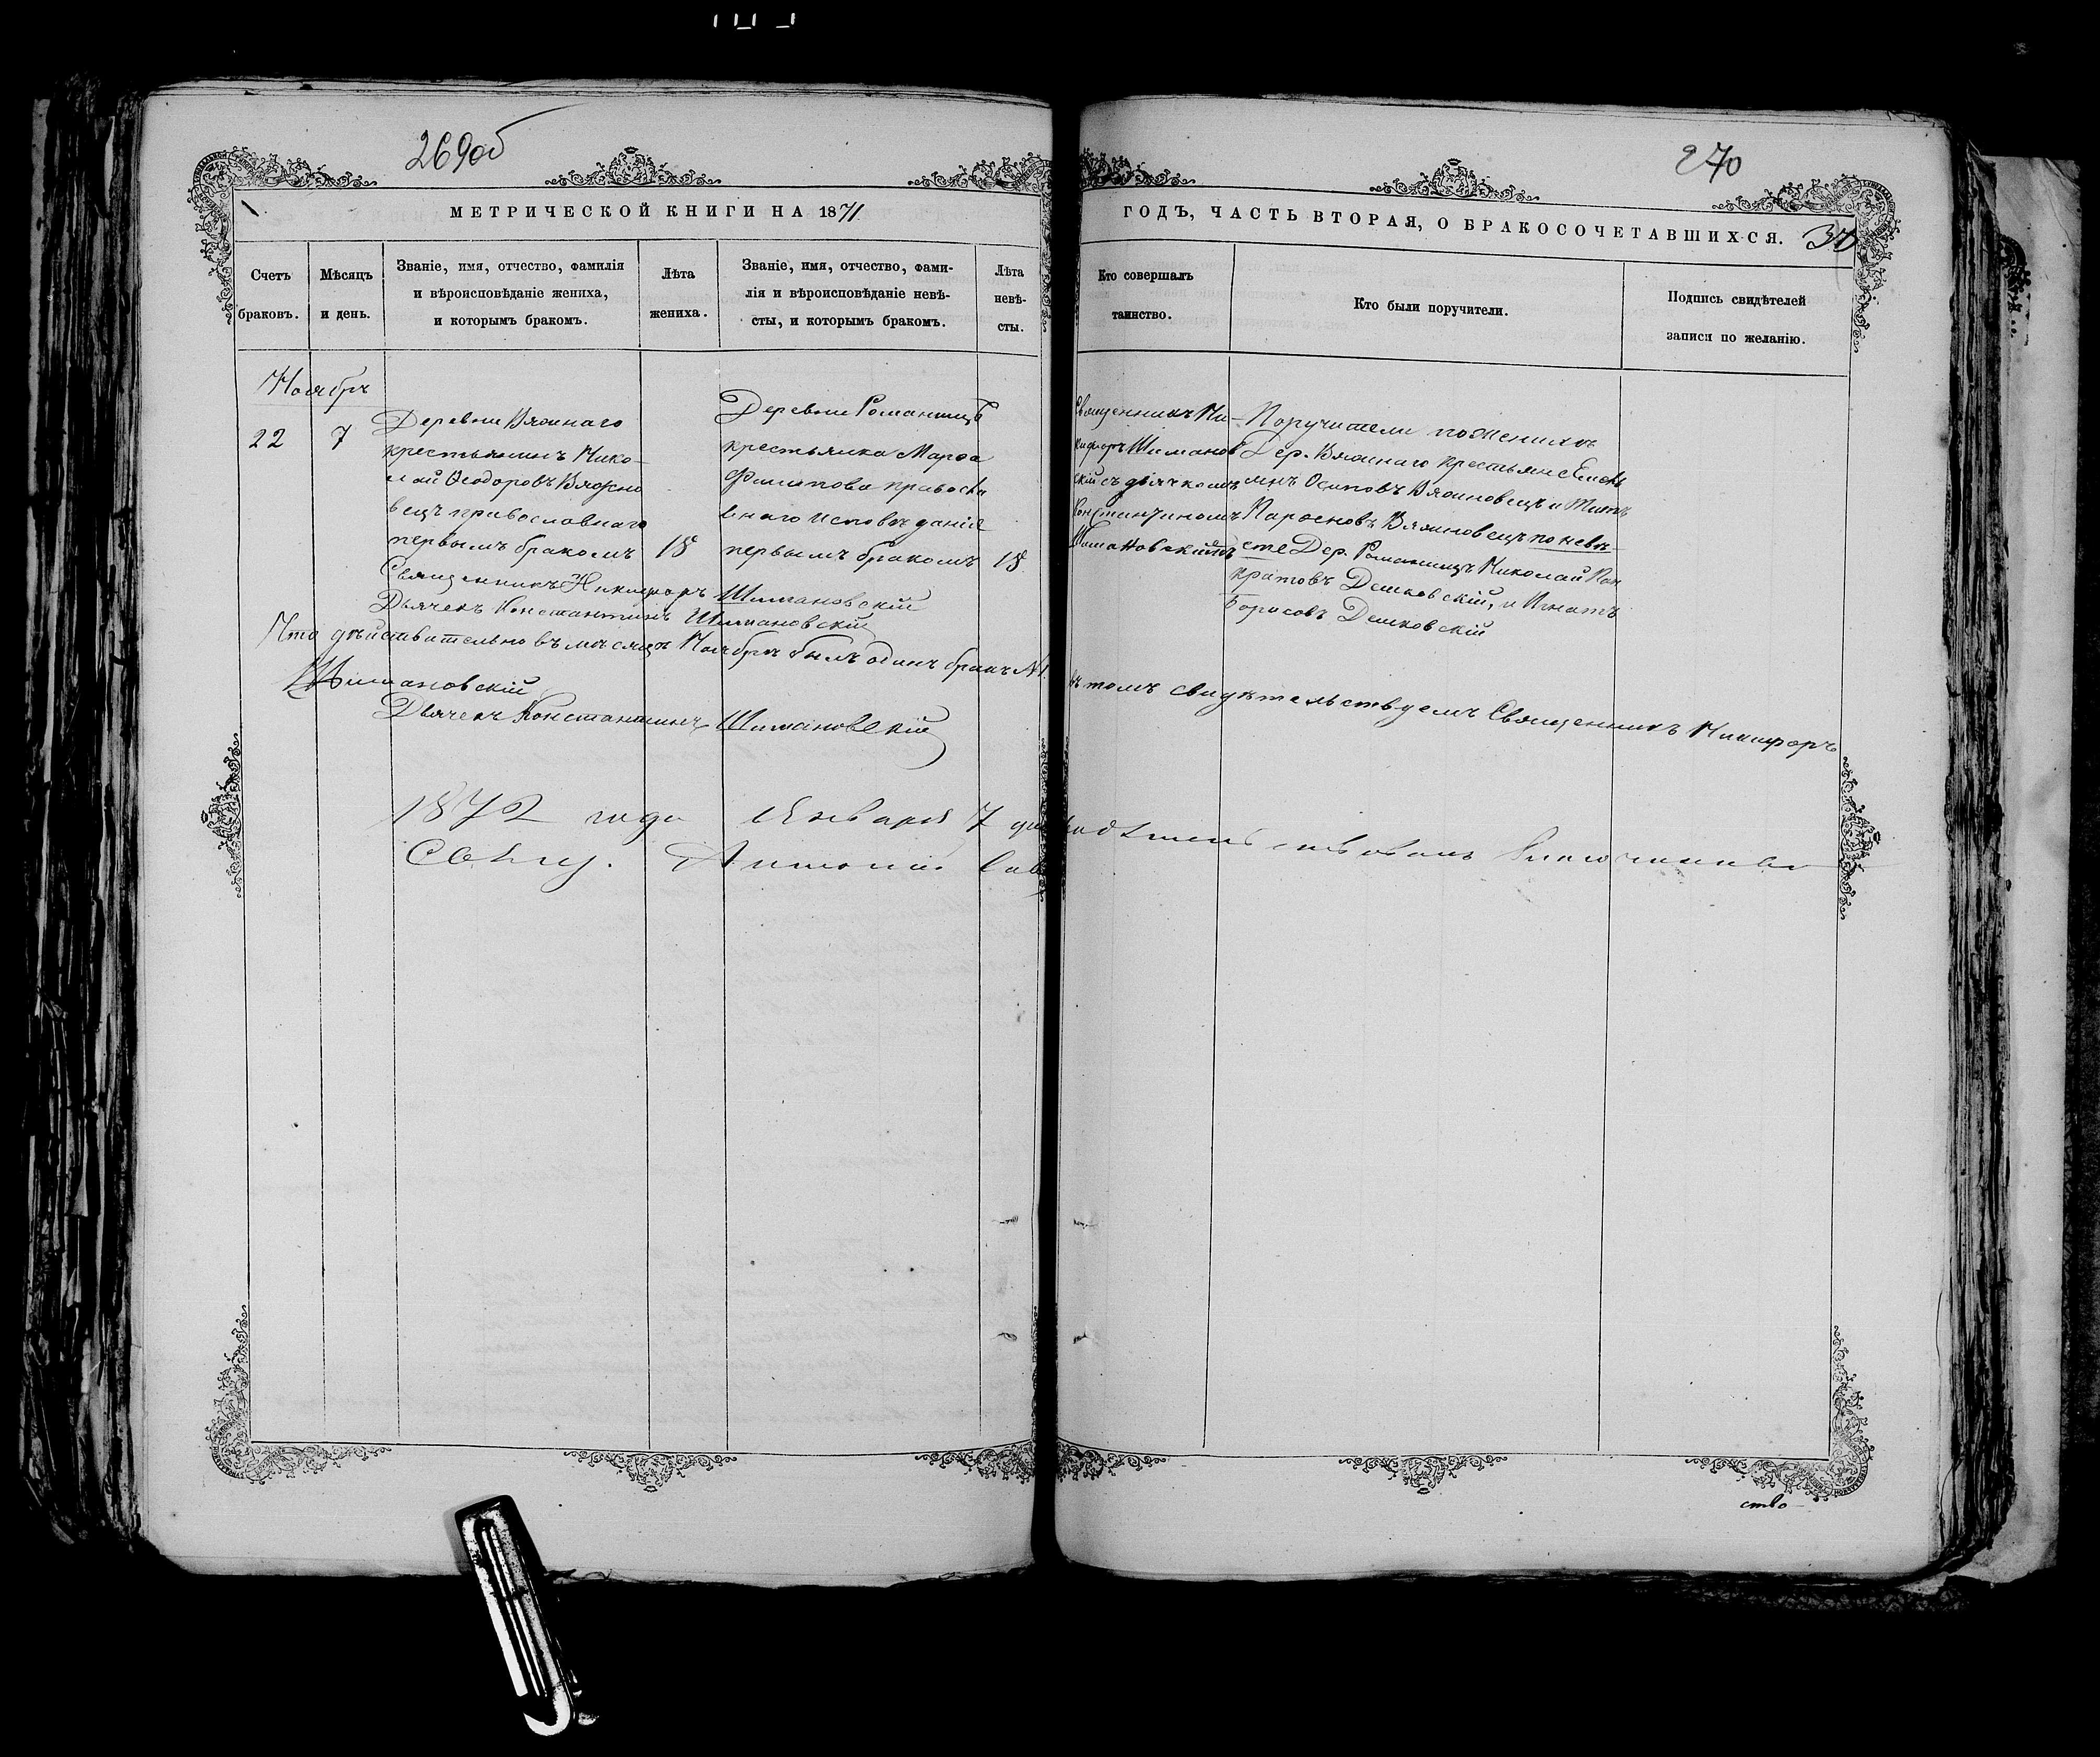 269об
270
МЕТРИЧЕСКОЙ КНИГИ НА 1871
ГОДЪ, ЧАСТЬ ВТОРАЯ, О БРАКОСОЧЕТАВШИХСЯ.
Счетъ браковъ.
Мѣсяцъ и день.
Званіе, имя, отчество, фамилія
и вѣроисповѣданіе жениха,
и которымъ бракомъ.
Лѣта
жениха.
Званіе, имя, отчество, фами-
лія и вѣроисповѣданіе невѣ-
сты, и которымъ бракомъ.
Лѣта
невѣ-
сты.
Кто совершалъ
таинство.
Кто были поручители.
Подпись свидѣтелей
записи по желанію.
Ноябрь
22
7
Деревни Вяжнаго
крестьянинъ Нико-
лай Ѳеодоровъ Вяжно
вецъ православнаго
первымъ бракомъ
18
Деревни Романищъ
крестьянка Марѳа
Филипова правосла
внаго исповѣданія
первымъ бракомъ
18
Священникъ Ни-
кифоръ Шиманов
скій съ дьячкомъ
Константиномъ
Шимановскимъ
Поручители по женихѣ
Дер. Вяжнаго крестьяне
Осиповъ Вяжновецъ и
Парѳеновъ Вяжновецъ по невѣ-
сте Дер. Романищъ Николай Пан
кратовъ Дешковскій, и Игнатъ
Борисовъ Дешковскій
Священникъ Никифоръ Шимановскій
Дьячекъ Константинъ Шимановскій
Что дѣйствительно въ мѣсяцѣ Ноябрѣ былъ одинъ бракъ №1.
въ томъ свидѣтельствуемъ Священникъ Никифоръ
Шимановскій
Дьячекъ Константинъ Шимановскій
1872 года Января 7 дня
Свящ. Антоній
ство